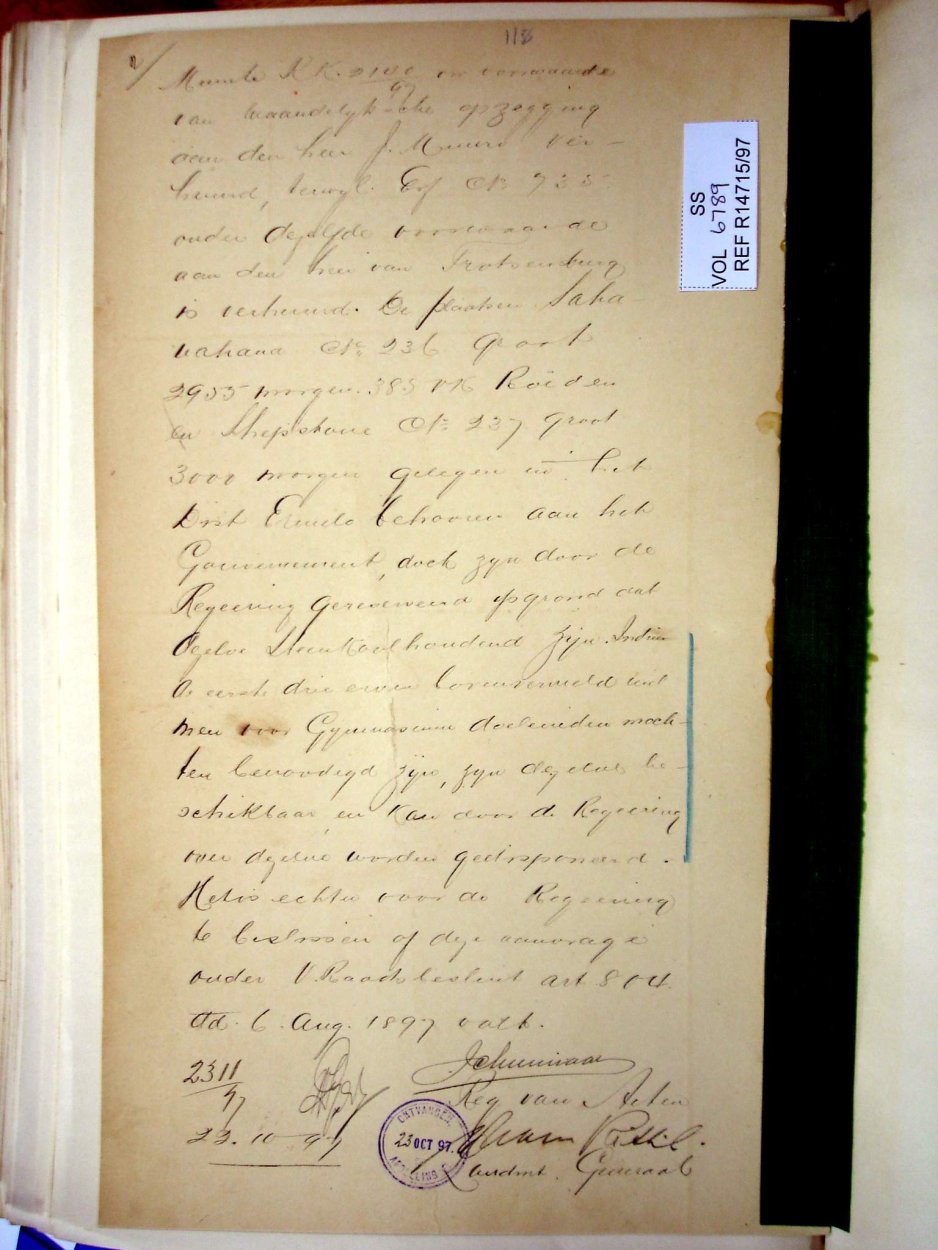 118
2/
Minute R.R. 2180/97 on voorwaarde
van maandelyksche opzegging
aan den heer J. Munro ver-
huurd, terwyl Erf No 735
onder dezelfde voorwaarde
aan den heer van Trotsenburg
is verhuurd. De plaatsen Saha-
wahana No 236 groot
2955 morgen 385 vk Roeden
en Shepstone No 237 groot
3000 morgen gelegen in het
Dist Ermelo behooren aan het
Gouvernement, doch zyn door de
Regeering gereserveerd op grond dat
dezelve steenkoolhoudend zijn. Indien
de eerste drie erven bovenvermeld
men voor Gymnasium doeleinden moch-
ten benoodigd zyn, zyn dezelve be-
schikbaar en kan door de Regeering
over dezelve worden gedisponeerd.
Het is echter voor de Regeering
te beslissen of deze aanvrage
onder V. Raadsbesluit art 804
dd. 6 Aug. 1897 valt.
2311/97
22.10.97
Reg van Acten
Landmt. Generaal
ONTVANGEN
23 OCT 97.
AFDEELING
SS
VOL 6789
REF R14715/97